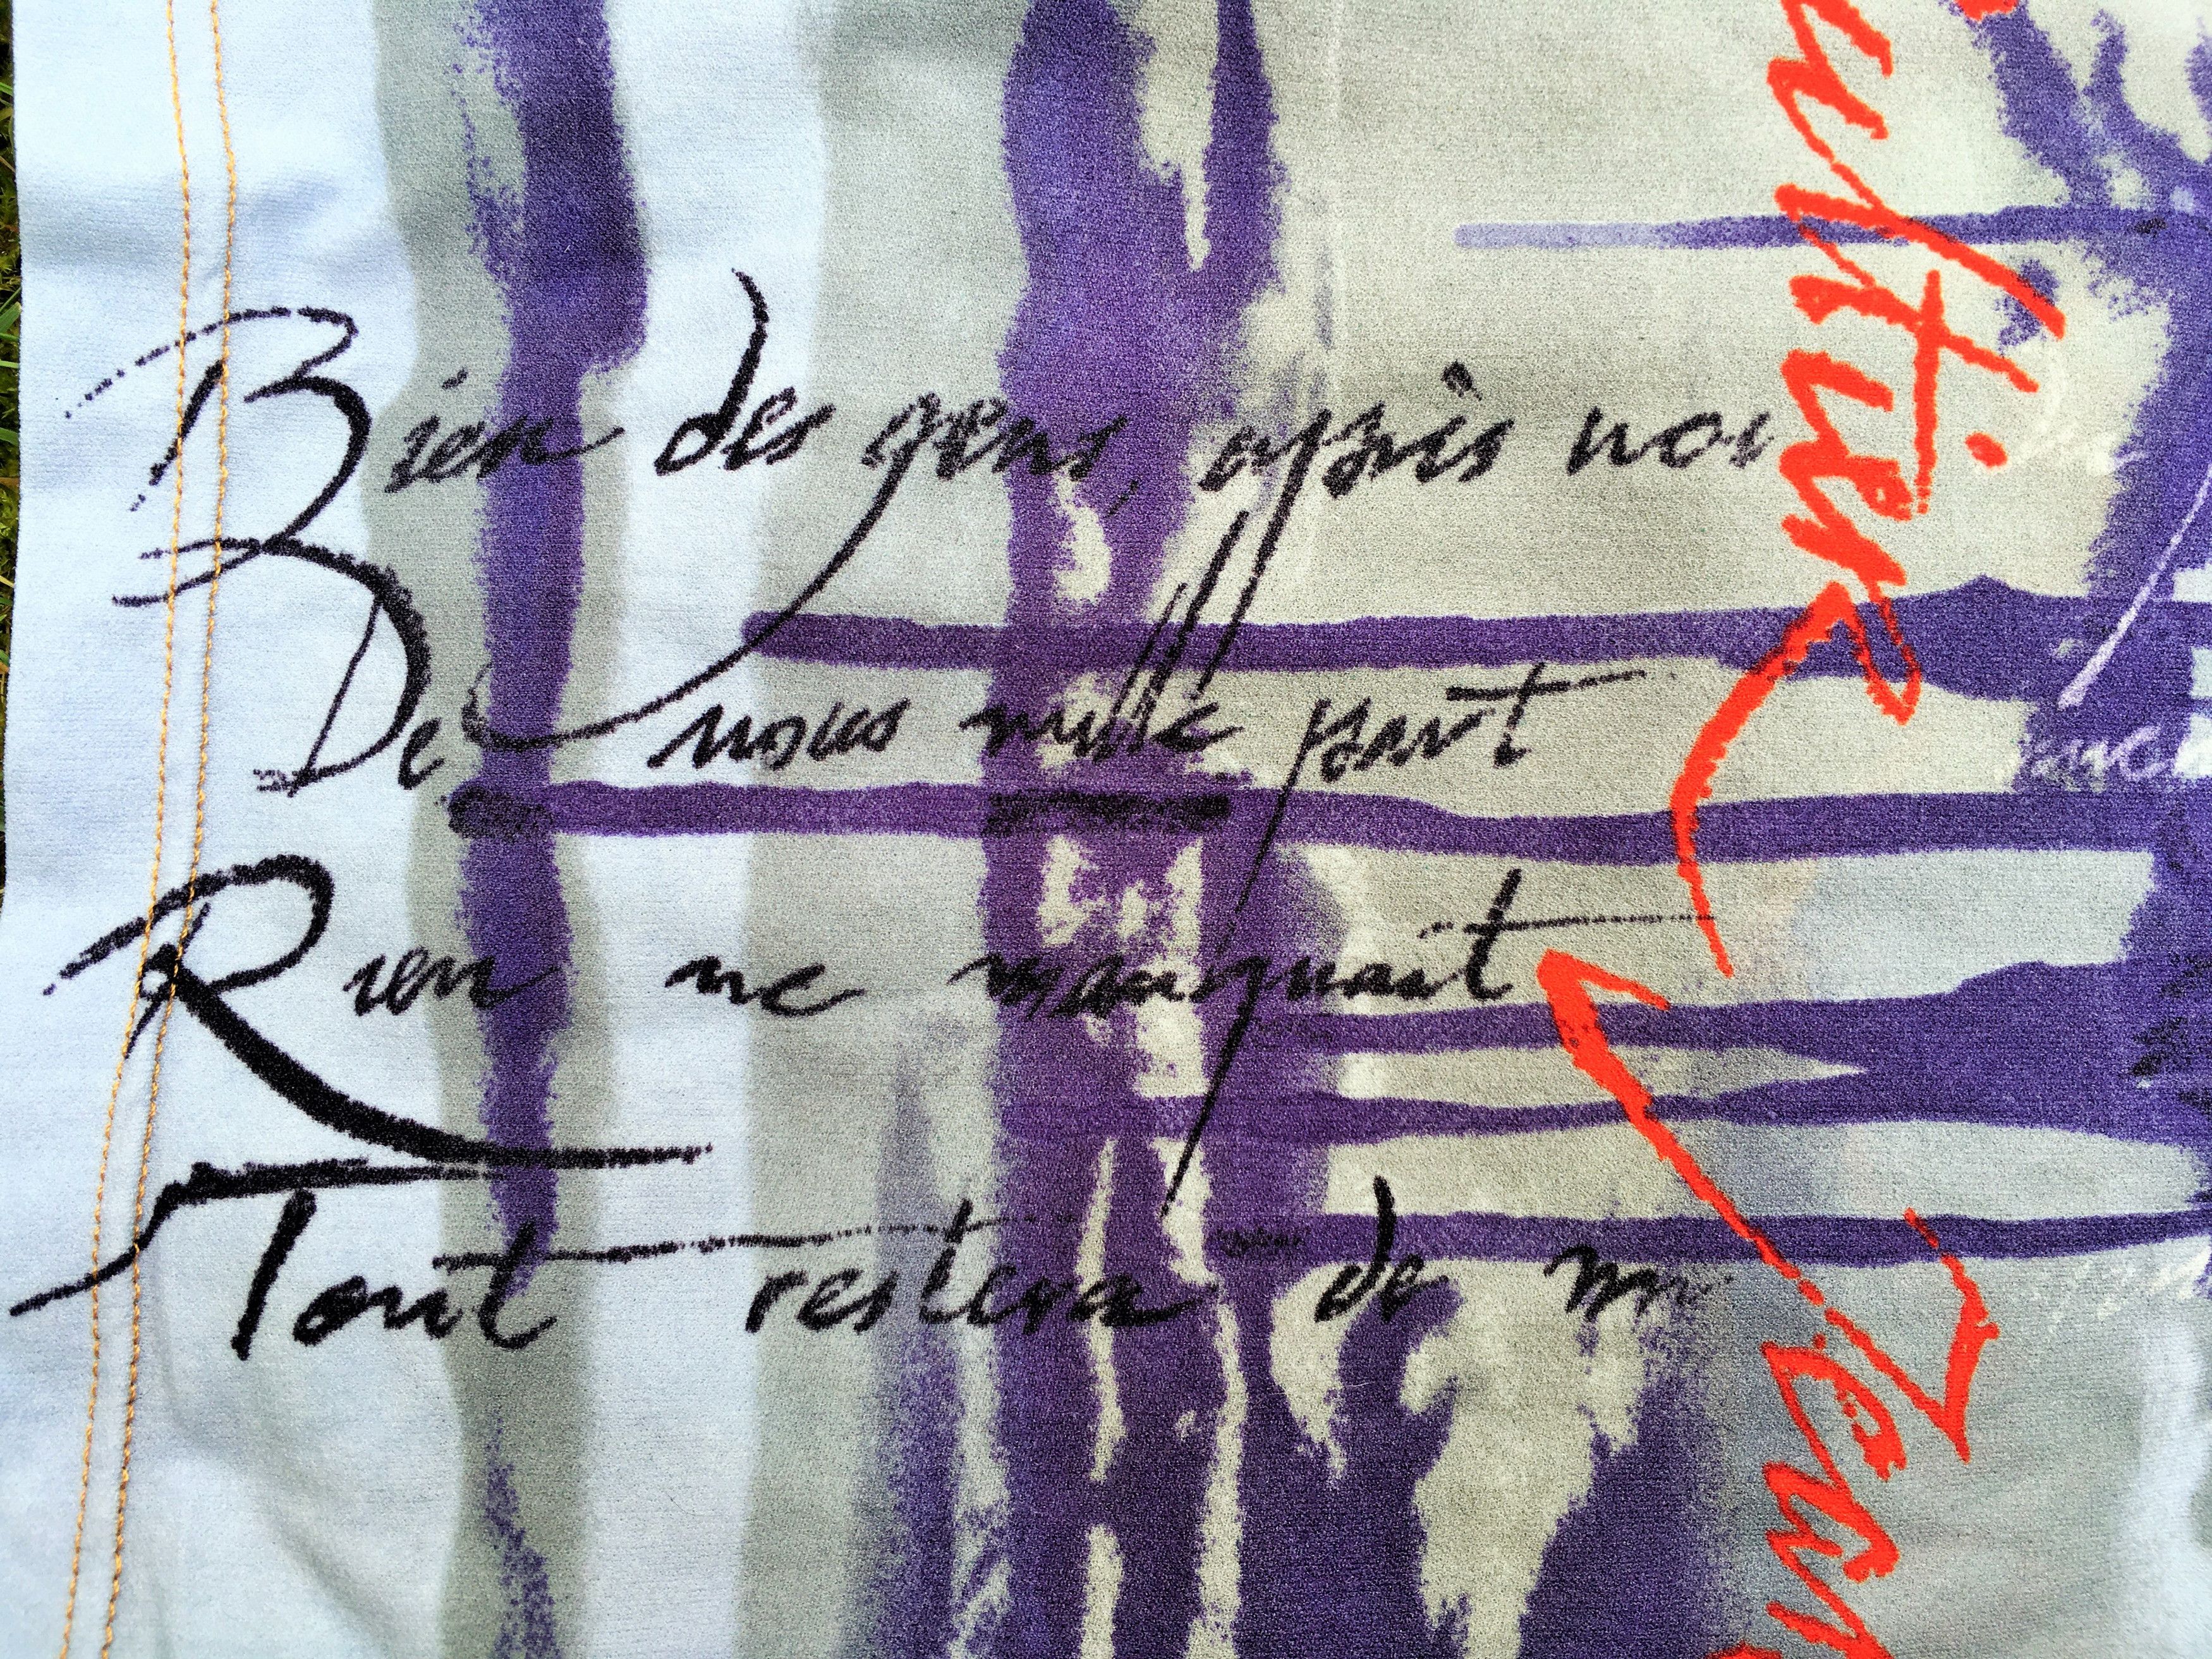 Bien des gens, après nou
De nous nulle part
Rien ne manquait
Tout restera de m
aultier
Jean